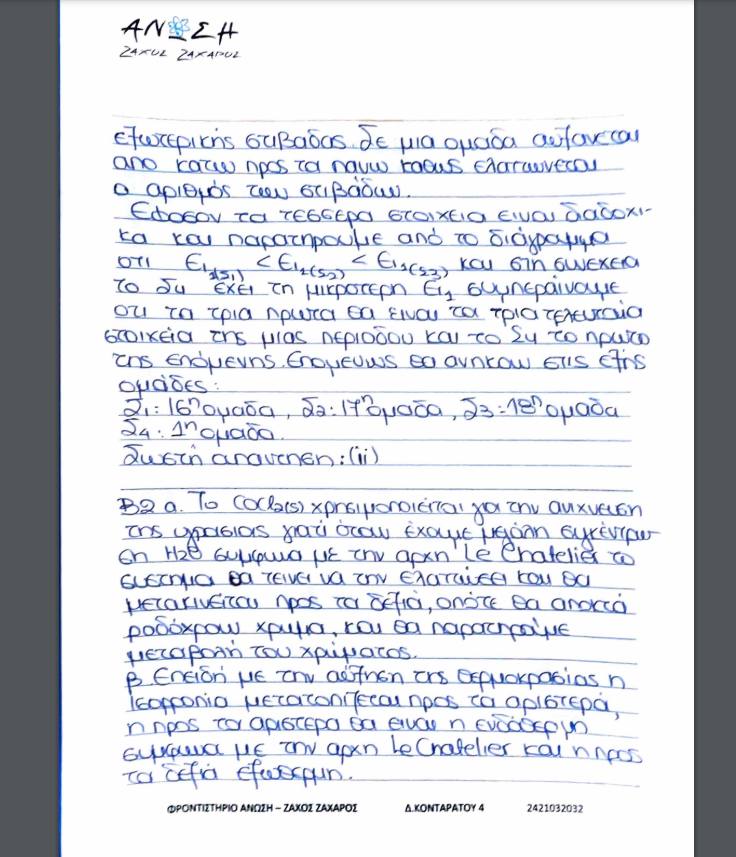 ΑΝΩΣΗ
ΖΑΧΟΣ ΖΑΧΑΡΟΣ
εξωτερικής στιβαδας. Σε μια ομαδα αυξανεται
απο κατω προς τα πανω καθως ελαττωνεται
ο αριθμός των στιβάδων.
Εφοσον τα τεσσερα στοιχεια ειναι διαδοχι-
κα και παρατηρουμε από το διάγραμμα
οτι Ei1(Σ1) < Ei1(Σ2) < Ei1(Σ3) και στη συνεχεια
το Σ4 έχει τη μικροτερη Ei1 συμπεραίνουμε
οτι τα τρια πρωτα θα ειναι τα τρια τελευταία
στοιχεία της μιας περιοδου και το Σ4 το πρωτο
της επόμενης. Επομενως θα ανηκουν στις εξής
ομάδες:
Σ1: 16η ομαδα, Σ2: 17η ομαδα, Σ3: 18η ομαδα
Σ4: 1η ομαδα.
Σωστή απαντηση: (ii)
Β2 α. Το CoCl2(s) χρησιμοποιείται για την ανιχνευση
της υγρασιας γιατί όταν έχουμε μεγάλη συγκέντρω
ση H2O συμφωνα με την αρχη Le Chatelier το
συστημα θα τεινει να την ελαττώσει και θα
μετακινείται προς τα δεξιά, οπότε θα αποκτά
ροδόχρουν χρωμα, και θα παρατηρούμε
μεταβολή του χρώματος.
β. Επειδή με την αύξηση της θερμοκρασίας η
ισορροπία μετατοπίζεται προς τα αριστερά,
η προς τα αριστερα θα ειναι η ενδόθερμη
συμφωνα με την αρχη Le Chatelier και η προς
τα δεξιά εξωθερμη.
ΦΡΟΝΤΙΣΤΗΡΙΟ ΑΝΩΣΗ – ΖΑΧΟΣ ΖΑΧΑΡΟΣ Δ.ΚΟΝΤΑΡΑΤΟΥ 4 2421032032